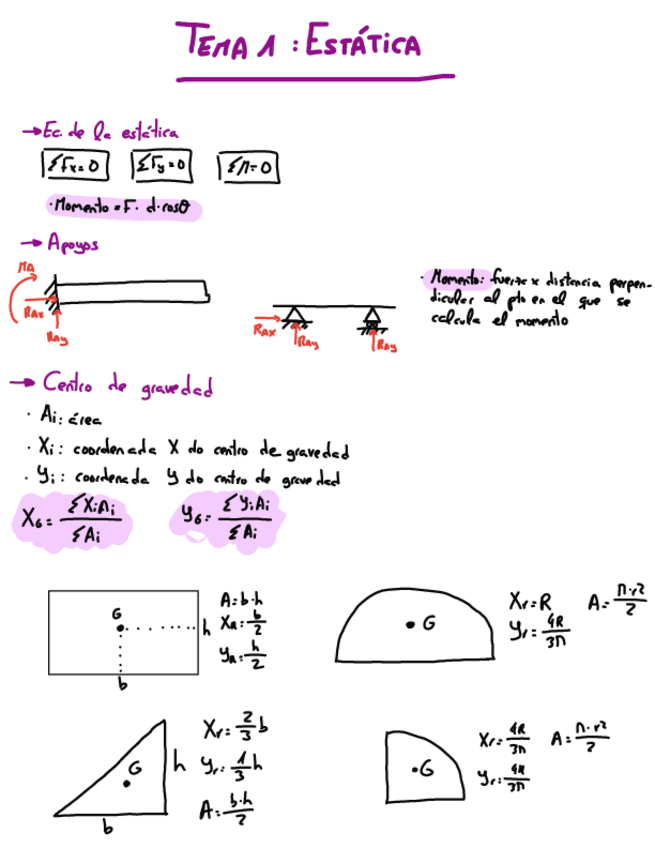 TEMA 1 : ESTÁTICA
→ Ec. de la estática
ΣFx=0 ΣFy=0 ΣM=0
· Momento = F. d.cosθ
→ Apoyos
MA
RAx
RAy
RAx
RAy
RAy
· Momento: fuerza x distancia perpen-
dicular al pto en el que se
calcula el momento
→ Centro de gravedad
· Ai: área
· Xi: coordenada X do centro de gravedad
· Yi: coordenada Y do centro de gravedad
XG = ΣXiAi / ΣAi YG = ΣYiAi / ΣAi
G
h
b
A=b·h
XR= b/2
YR= h/2
G
Xr=R A= π·r²/2
Yr= 4R/3π
G
h
b
Xr= 2/3 b
Yr= 1/3 h
A= b·h/2
G
Xr= 4R/3π A= π·r²/2
Yr= 4R/3π